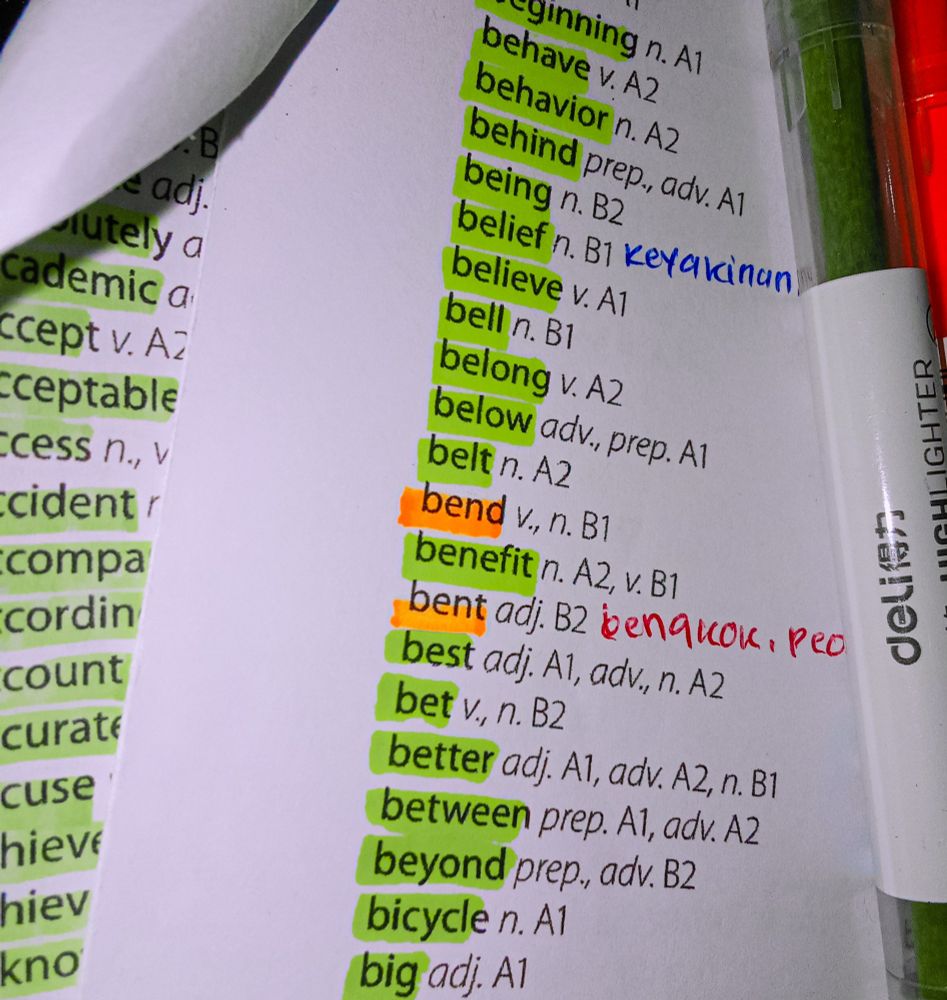 B
adj.
lutely a
cademic a
ccept v. A2
cceptable
ccess n., v
ccident
ccompa
ccordin
ccount
curate
cuse
hieve
hiev
kno
beginning n. A1
behave v. A2
behavior n. A2
behind prep., adv. A1
being n. B2
belief n. B1 keyakinan
believe v. A1
bell n. B1
belong v. A2
below adv., prep. A1
belt n. A2
bend v., n. B1
benefit n. A2, v. B1
bent adj. B2 bengkok, peo
best adj. A1, adv., n. A2
bet v., n. B2
better adj. A1, adv. A2, n. B1
between prep. A1, adv. A2
beyond prep., adv. B2
bicycle n. A1
big adj. A1
deli得力
HIGHLIGHTER